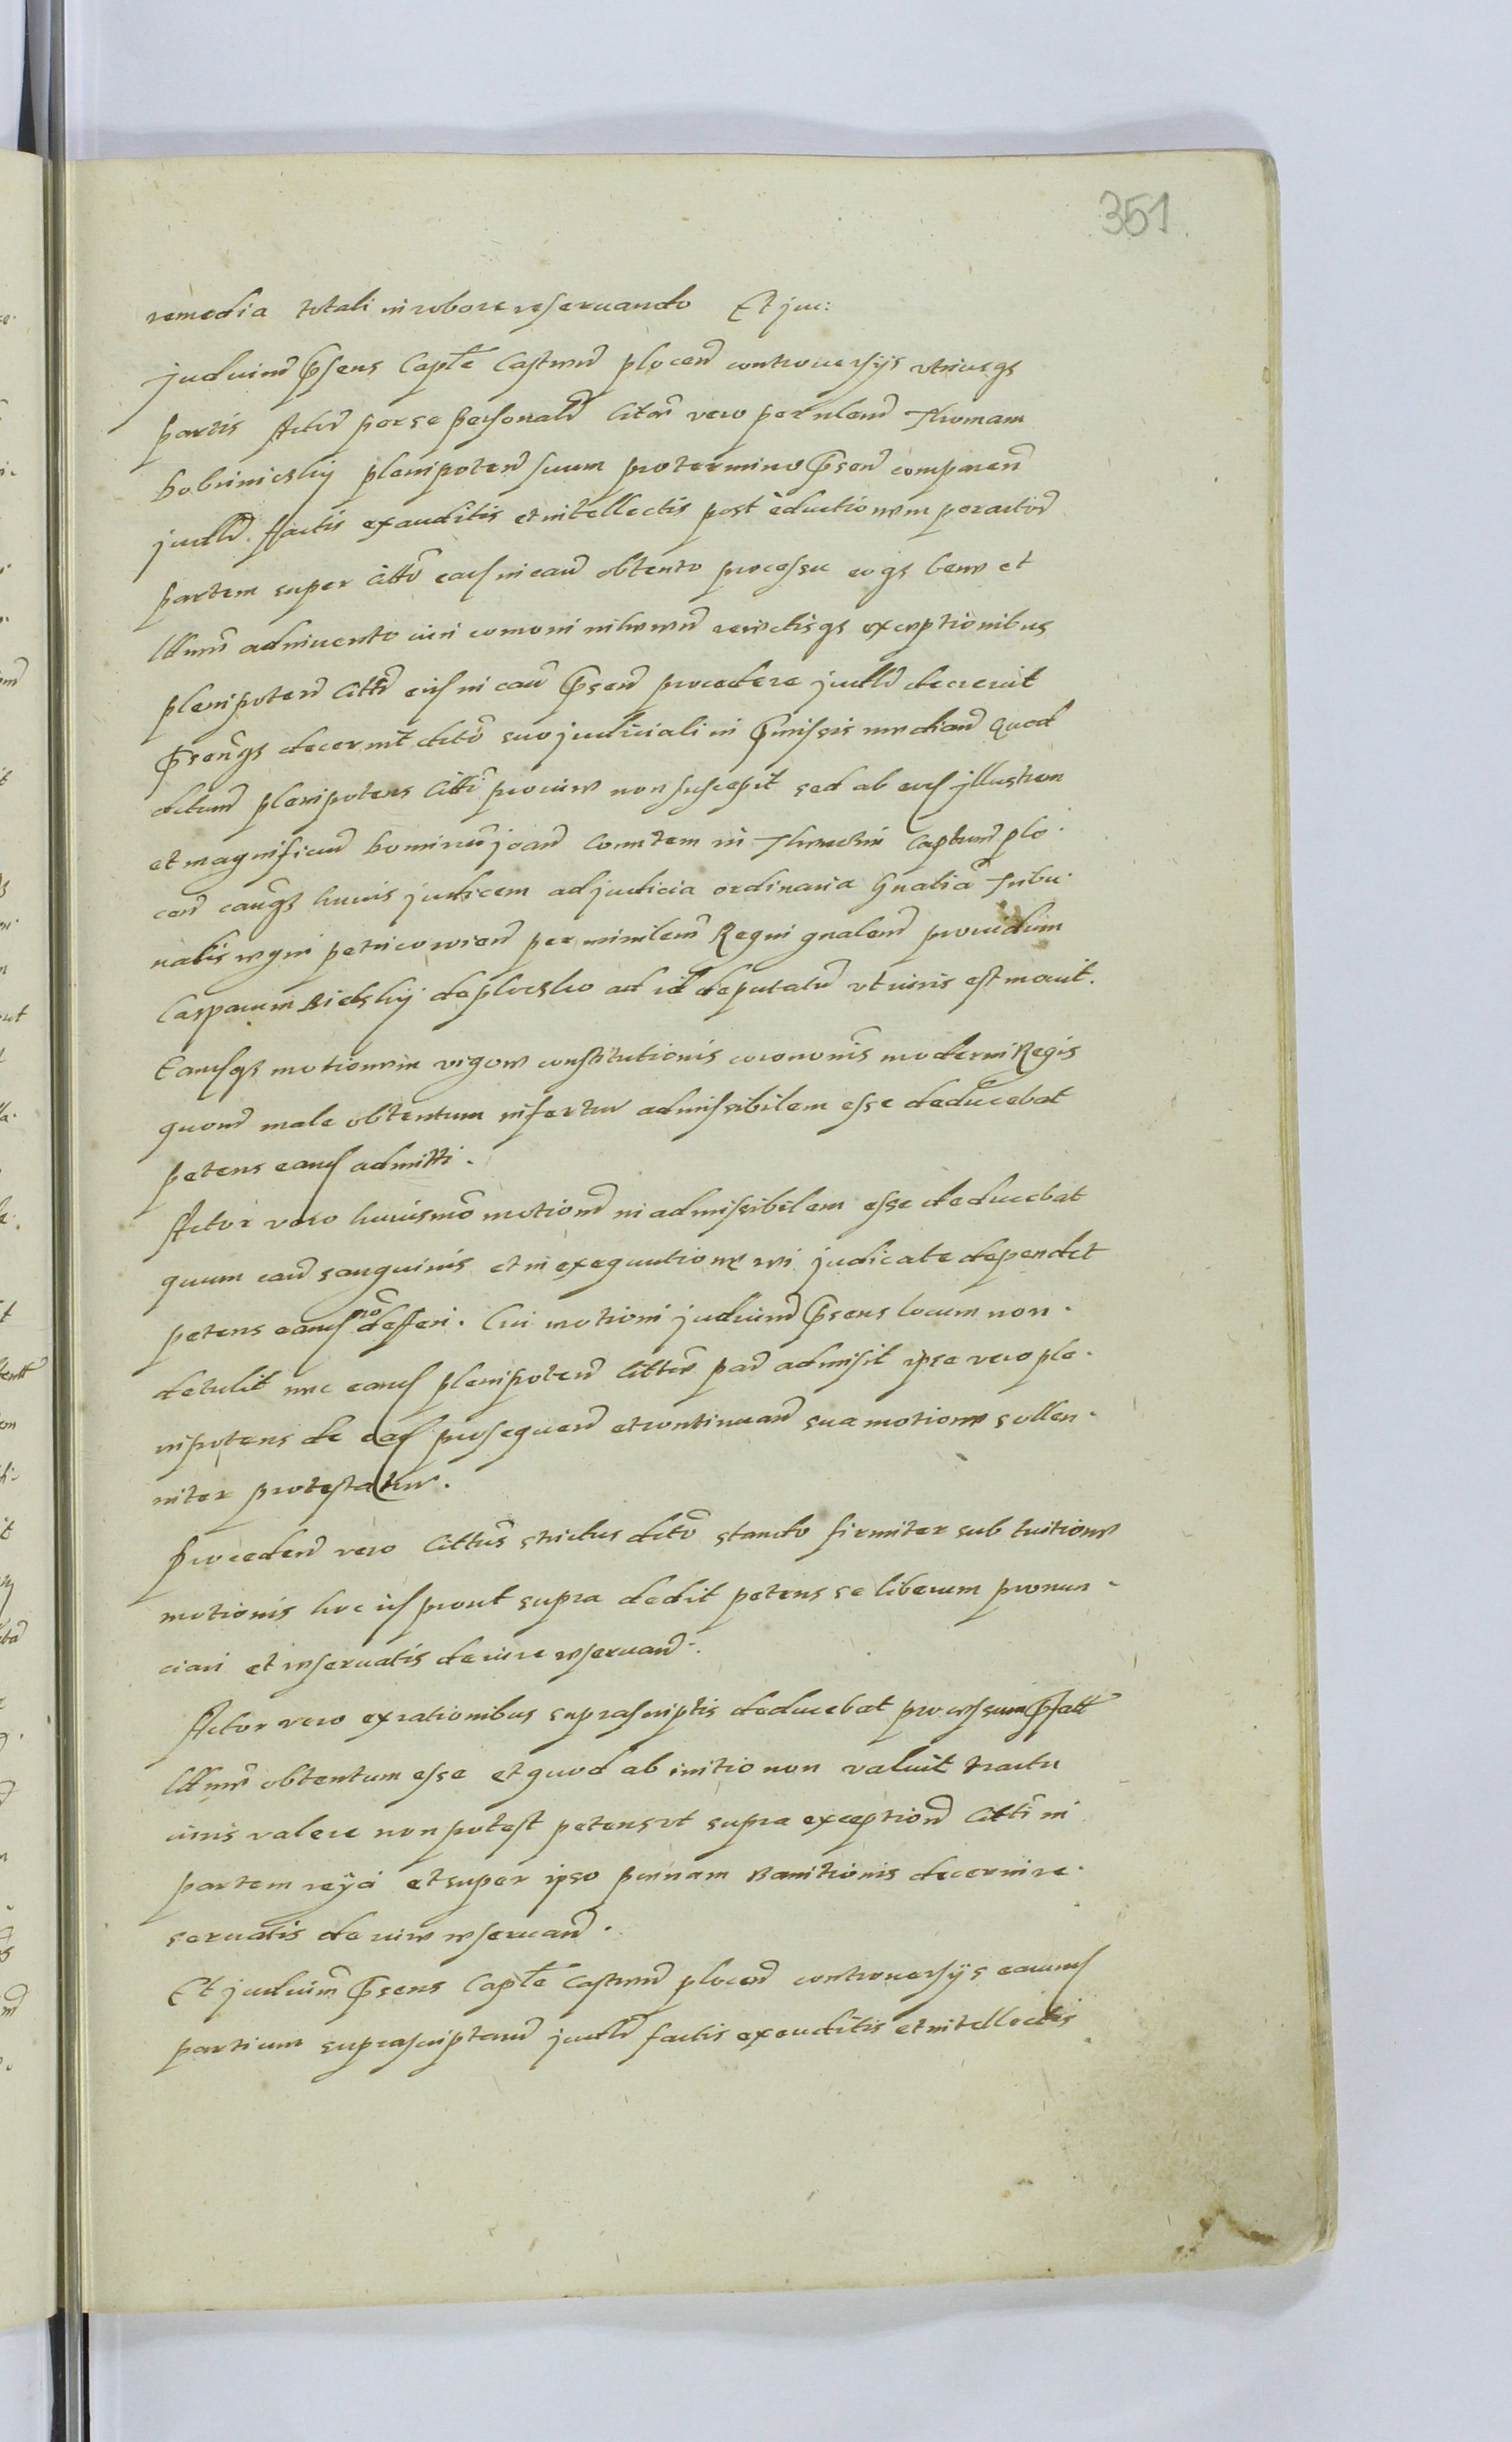 351
remedia totali in robore reseruando Et jur:
Judicium p̃sens Captle Castren̄ plocen̄ controuersijs vtriusqs
partis Actor̄ per se personalr̄ Citti vero per nlem̄ Thomam
Bobrinickij plenipoten̄ suum pro termino p̃sen̄ comparen̄
judlr̄. factis exauditis et intellectis post eductionem per actor̄
partem super citto eius in cau̅ obtento processu eoqs bene et
lttme adinuento iuri comoni inheren̄ reiectisqs exceptionibus
plenipoten̄ Citti eius in cau̅ p̃sen̄ procedere judlr̄ decreuit
p̃sen̄qs decernit dcto suo judiciali in p̃missis median̄ Quod
dctum plenipotens Citti pro iure non suscepit sed ab eius Illustrem
et magnificum Dominum Joan̄ Comitem in Captum plo
cen̄ cau̅qs huius judicem ad judicia ordinaria Gnalia Tribu
nalis regni petricouien̄ per minlem Regni gnalem prouidum
Casparum Bielskij de plocsko ad id deputatu̅ vt iuris est mouit.
Eamqs motionem vigore constitutionis corononis moderni Regis
quom̄ male obtentum infertur admissibilem esse deducebat
petens eam admitti.
Actor vero huiusmo motion̄ inadmissibilem esse deducebat
quum cau̅ sanguinis et in exequutione rei judicate dependet
petens eam no defferi. Cui motioni judicium p̃sens locum non
detulit nec eam plenipoten̄ Citti par̄ admisit ipse vero ple
nipotens de ea prosequen̄ et continuan̄ sua motione sollen
niter protestatur.
Proceden̄ vero Cittus strictus dcto stando firmiter sub tuitione
motionis hoc ius prout supra dedit petens se liberum pronun
ciari et reseruatis de iure reseruan̄.
Actor vero ex rationibus suprascriptis deducebat processum p̃fatt
lttme obtentum esse et quod ab initio non valuit tractu
iuris valere non potest petens vt supra exception̄ Citti in
partem reijci et super ipso pœnam Banitionis decerni re
seruatis de iure reseruan̄.
Et judicium p̃sens Captle Castren̄ plocen̄ controuersijs earum
partium suprascriptarum judlr̄ factis exauditis et intellectis